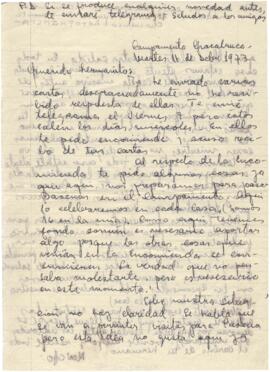 P.D. Si se produce cualquier novedad antes,
te enviaré telegrama. Saludos a los amigos
Campamento Chacabuco
Martes 11 de Dcbre 1973.
Querido hermanito:
Te he enviado varias
cartas, desgraciadamente no he reci-
bido respuesta de ellas. Te envié
telegramas el Viernes 7 pero estos
salen los días miercoles. En ellos
te pedía encomienda y acuso reci-
bo de tus cartas.
Al respecto de la enco-
mienda te pido algunas cosas ya
que aquí nos preparamos para pasar
Navidad en el campamento. Aquí
lo celebraremos en cada casa, somos
16 en la mía. Como aquí tenemos
fondo común es necesario aportar
algo porque las otras cosas que
venían en la encomienda se con-
sumieron. La verdad que no pen-
saba molestarte pero es necesario
en este momento!
Sobre nuestra situa-
ción no hay claridad. Se habla que
se van a permitir visitas para Navidad
pero esta idea no gusta aquí ya